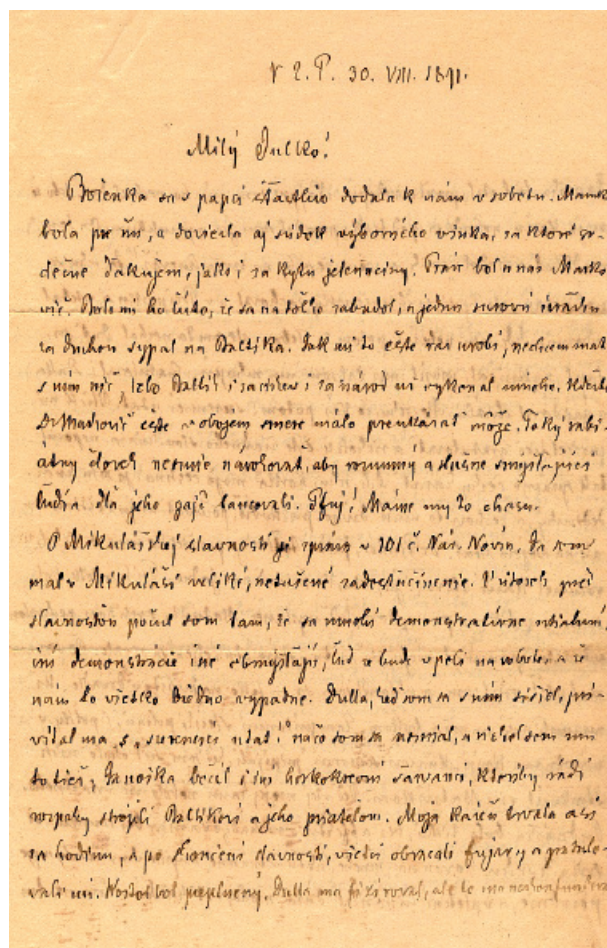 V L. P. 30. VIII. 1891.
Milý Julko!
Boženka sa s papči šťastlivo dodala k nám v sobotu. Mamka
bola pre ňu, a doviezla aj súdok výborného vínka, za ktoré sr-
dečne ďakujem, jako i za kytu jeleniciny. Práve bol u nás Marko
vič. Bolo mi ho ľúto, že sa na toľko zabudol, a jednu surovú
za druhou sypal na Baltíka. Jak mi to ešte raz urobí, nechcem mať
s ním nič, lebo Baltík i za církev i za národ už vykonal mnoho, kdežto
Dr Markovič ešte v obojem smere málo preukázať môže. Taký zabi-
átny človek nesmie navrhovať, aby rozumný a slušne smýšľajúci
ľudia dľa jeho gajd tancovali. Pfuj! Máme my to chasu.
O Mikulášskej slavnosti je zpráva v 101 č. Nár. Novín. Ja som
mal v Mikuláši veliké, netušené zadosťučinenie. V utorok pred
slavnosťou počul som tam, že sa mnohí demonstratívne utiahnu,
iní demonstrácie iné obmýšľajú, ľud že bude v poli na robote, a že
nám to všetko biedno vypadne. Dulla, keď som sa s ním sišiel, pri-
vítal ma, s „ utať!" načo som sa nasmial, a riekol som mu
to tiež, Janoška bečil i iní horkokrvní šarvanci, ktorí by rádi
rozpaky strojili Baltíkovi a jeho priateľom. Moja kázeň trvala asi
za hodinu, a po skončení slavnosti, všetci obracali fujary a gratulo-
vali mi. Kostol bol preplnený. Dulla ma fixiroval, ale to ma